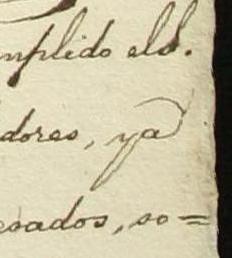 mplido el S.
dores, ya
esados, so=